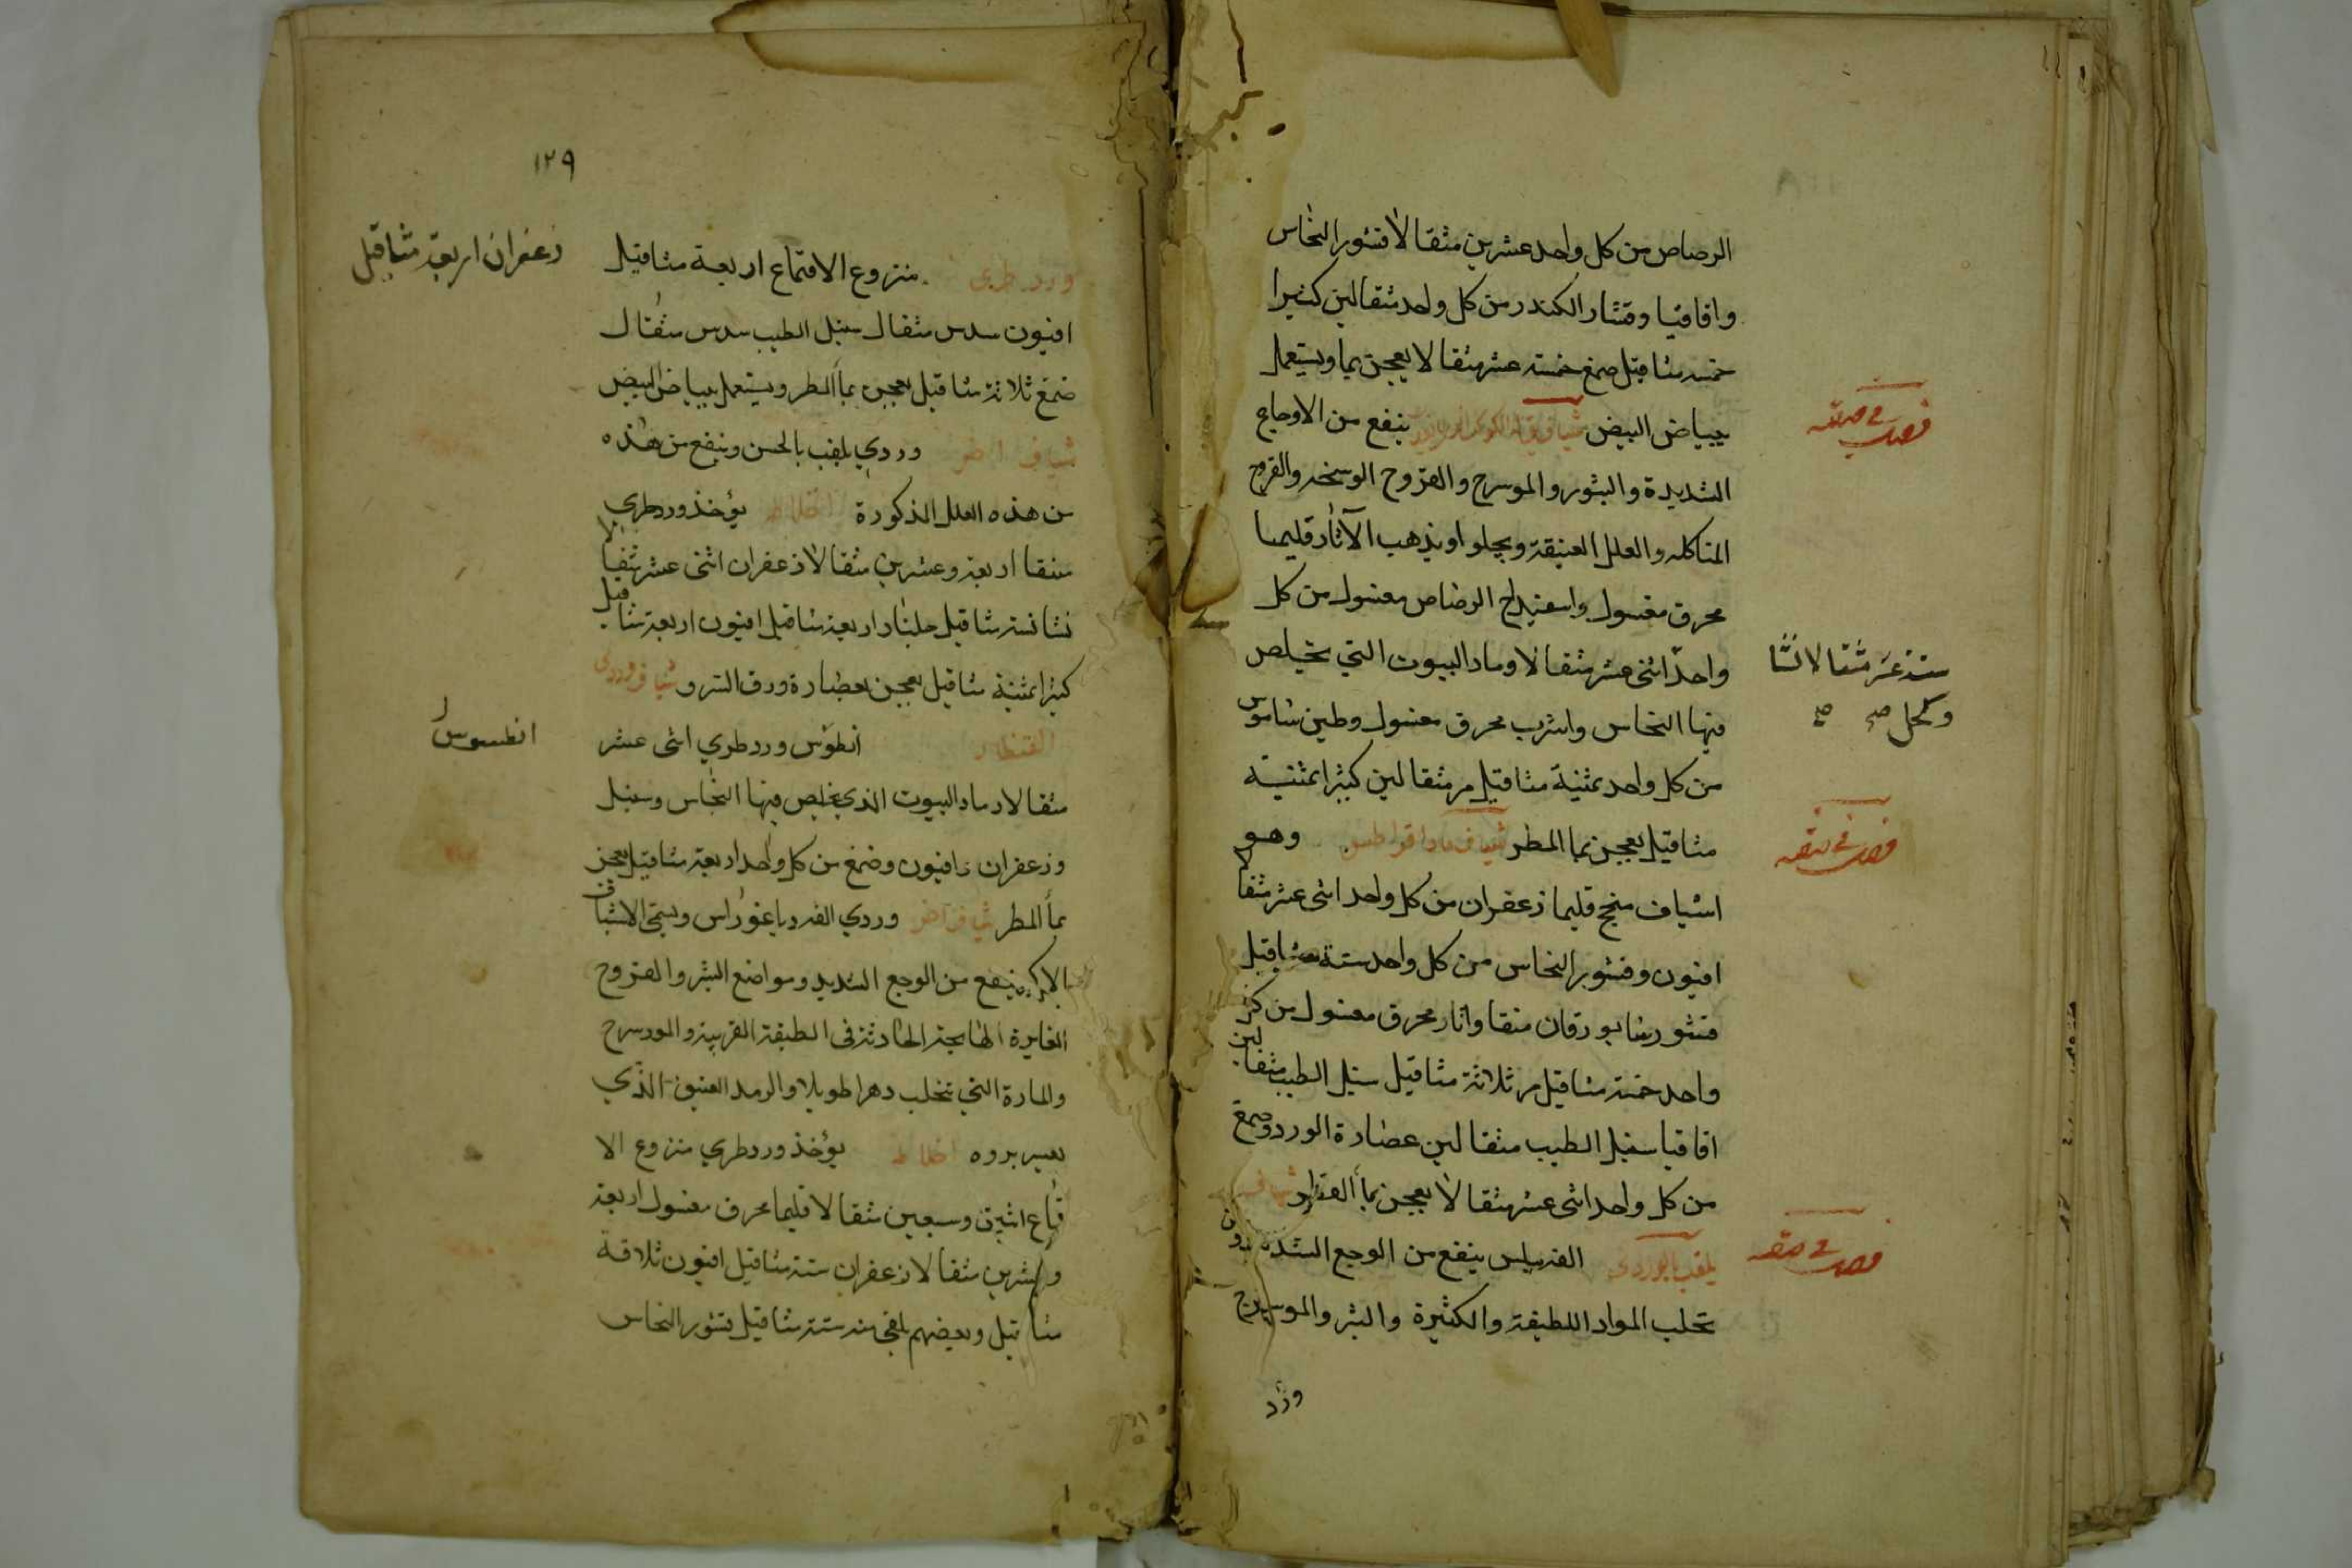 الرصاص من كل واحد عشرين مثقالا قشور النحاس
واقاقيا وقشار الكندر من كل واحد مثقالين كثيرا
خمسه مثاقيل صمغ خمسة عشر مثقالا يعجن بما ويستعمل
ببياض البيض ينفع من الاوجاع
فصد في صفه
الشديدة والبثور والموسرج والقروح الوسخه والقروح
المتاكله والعلل العتيقة ويجلو او يذهب الآثار قليميا
محرق مغسول واسفيداج الرصاص مغسول من كل
واحد اثنى عشر مثقالا وماد البيوت التي يخلص
ستة عشر مثقالا نشا
وكحل صح صح
فيها النحاس واسرب محرق مغسول وطين شاموس
من كل واحد ثمنية مثاقيل مر مثقالين كثيرا ثمنية
مثاقيل يعجن بما المطر وهو
اشياف منجح قليميا زعفران من كل واحد اثنى عشر مثقالا
افيون وقشور النحاس من كل واحد ستة مثاقيل
قشور شابورقان منقا واثار محرق مغسول من كل
واحد خمسة مثاقيل مر ثلاثة مثاقيل سنبل الطيب مثقالين
اقاقيا سنبل الطيب مثقالين عصارة الورد وصمغ
من كل واحد اثنى عشر مثقالا يعجن بماء
ينفع من الوجع الشديد
تحلب المواد اللطيفة والكثيرة والبثر والموسرج
ورد
١٢٩
ورد طرى منزوع الاقماع اربعة مثاقيل
زعفران اربعة مثاقيل
افيون سدس مثقال سنبل الطيب سدس مثقال
صمغ ثلاثة مثاقيل يعجن بماء المطر ويستعمل ببياض البيض
شياف وردي يلقب بالحسن وينفع من هذه
من هذه العلل المذكورة اخلاطه يؤخذ ورد طري
منقا اربعة وعشرين مثقالا زعفران اثنى عشر مثقالا
نشا ستة مثاقيل جلنار اربعة مثاقيل افيون اربعة مثاقيل
كثيرا ثمنية مثاقيل يعجن بعصارة ورق السرو
انطوس ورد طري اثنى عشر
انطسوس
مثقالا رماد البيوت الذي يخلص فيها النحاس وسنبل
وزعفران وافيون وصمغ من كل واحد اربعة مثاقيل يعجن
بماء المطر وردي
ينفع من الوجع الشديد ومواضع البثر والقروح
الغايرة الهايجة الحادثة في الطبقة القرنية والمورسرج
والمادة التي تتحلب دهرا طويلا والرمد العتيق الذي
يعسر بروه اخلاطه يؤخذ ورد طري منزوع الا
قماع اثنين وسبعين مثقالا قليميا محرق مغسول اربعة
وعشرين مثقالا زعفران ستة مثاقيل افيون ثلاثة
مثاقيل وبعضهم يلقى منه ستة مثاقيل قشور النحاس